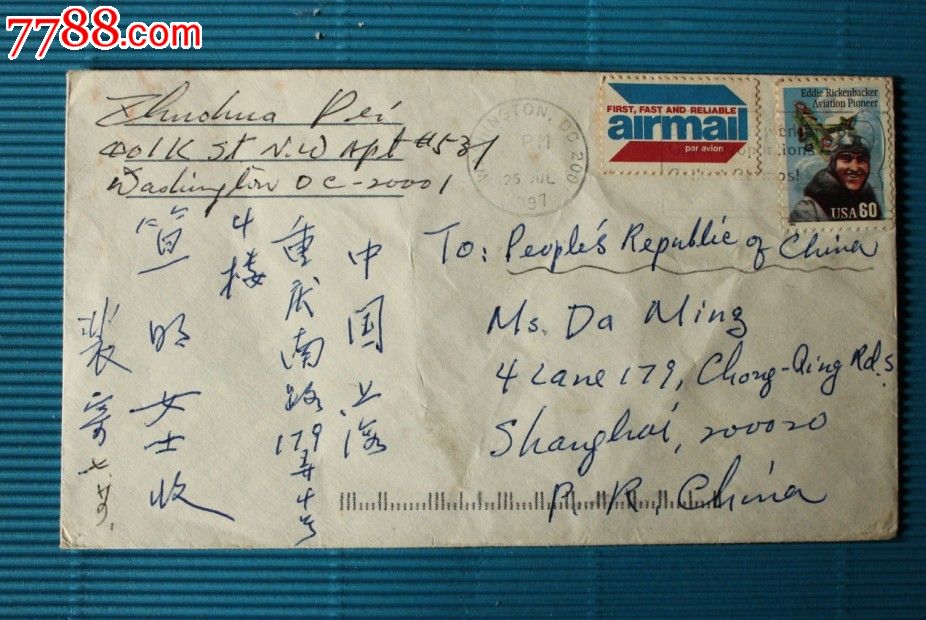 7788.com
Zhuohua Pei
401 K St N.W Apt #537
Washington DC-20001
WASHINGTON, DC 200
PM
25 JUL
1997
FIRST, FAST AND RELIABLE
airmail
par avion
Eddie Rickenbacker
Aviation Pioneer
USA 60
To: People's Republic of China
Ms. Da Ming
4 Lane 179, Chong-Qing Rd. S
Shanghai, 200020
P. R. China
中国上海
重庆南路179弄4号
4楼
明女士收
裴寄七.